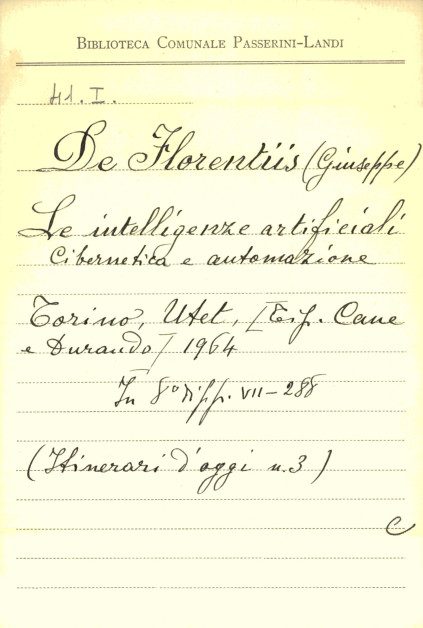 BIBLIOTECA COMUNALE PASSERINI-LANDI
41. I.
De Florentiis (Giuseppe)
Le intelligenze artificiali
Cibernetica e automazione
Torino, Utet, [Tip. Cane
e Durando] 1964
In 8° di pp. VII-288
(Itinerari d'oggi n.3)
C